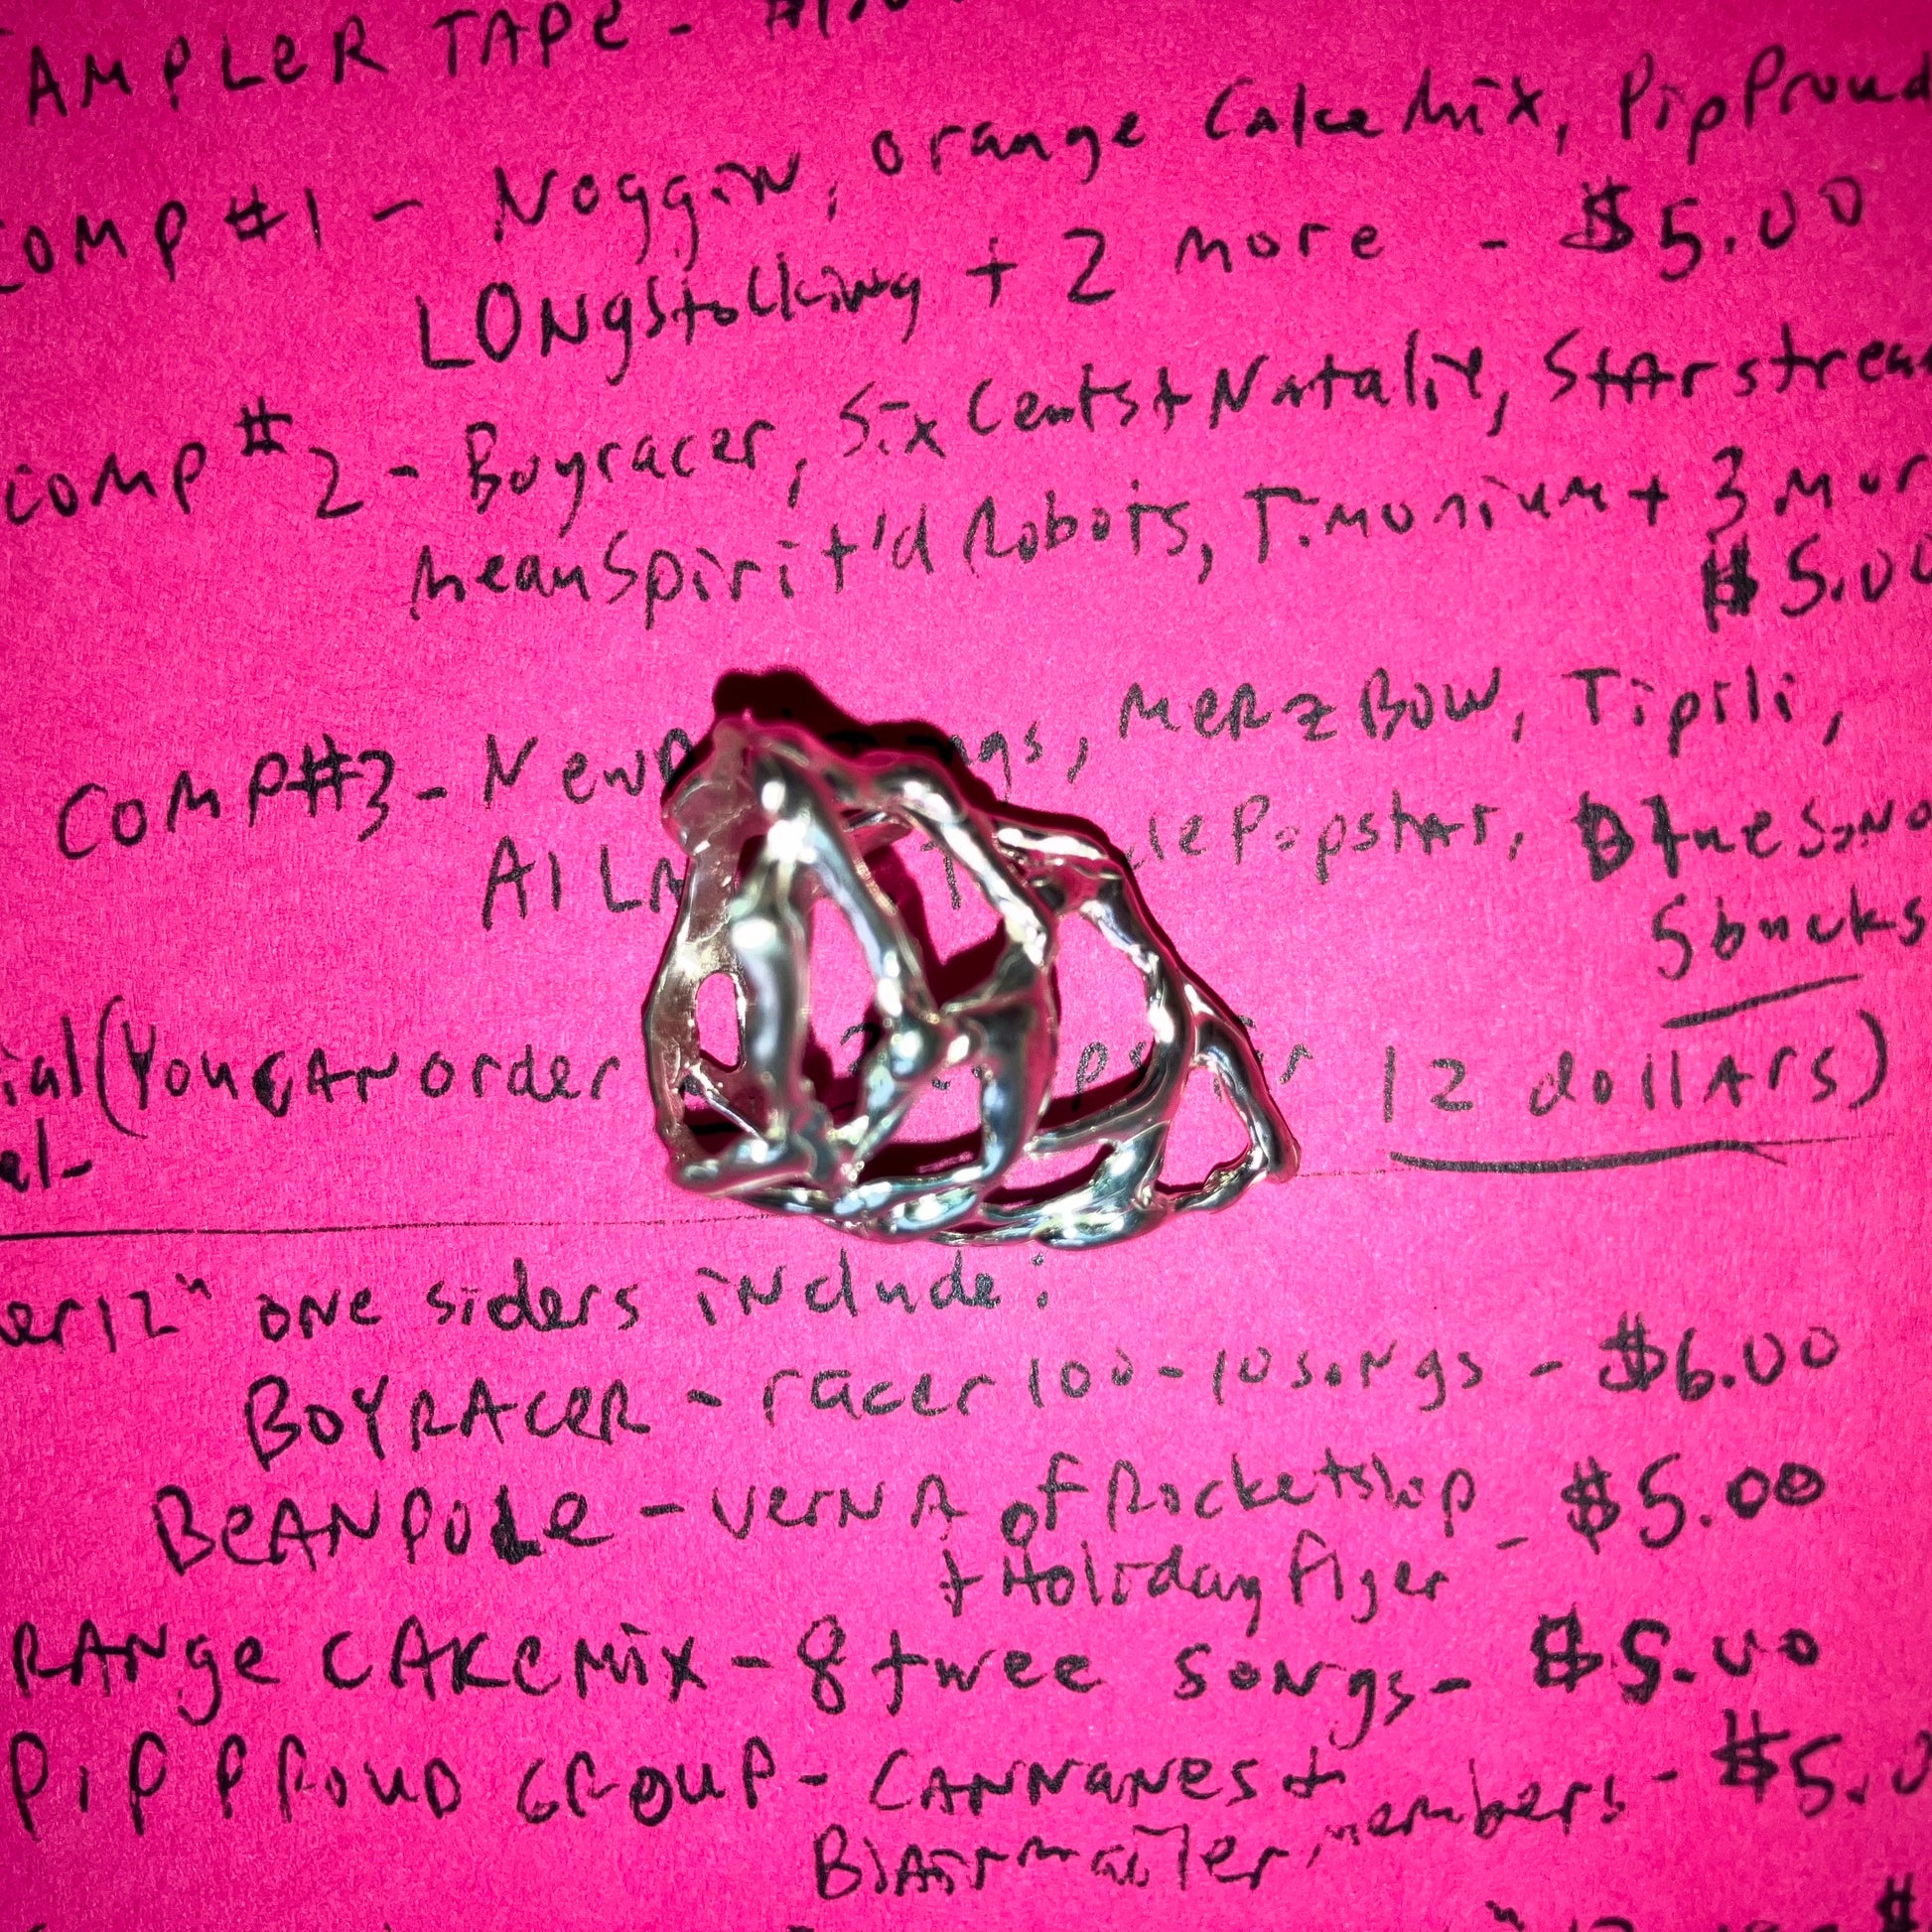 AMPLER TAPE -
COMP #1 - Noggin, Orange Cake Mix, Pip Proud
LONgstocking + 2 more - $5.00
COMP #2 - Boyracer, Six Cents + Natalie, Starstrea
MeanSpirit'd Robots, Timonium + 3 mor
$5.00
COMP#3 - New ngs, MERZBOW, Tipili,
AILA Popstar, Bluesano
5bucks
ial (You CAN order 12 dollars)
el-
er12" one siders include:
BOYRACER - racer100 - 10 songs - $6.00
BEANPOLE - Verna of Rocketship - $5.00
+ Holiday Flyer
RANge CAKE Mix - 8 twee songs - $5.00
PiP PROUD GROUP - CANNANES + - $5.0
Blairmailer members